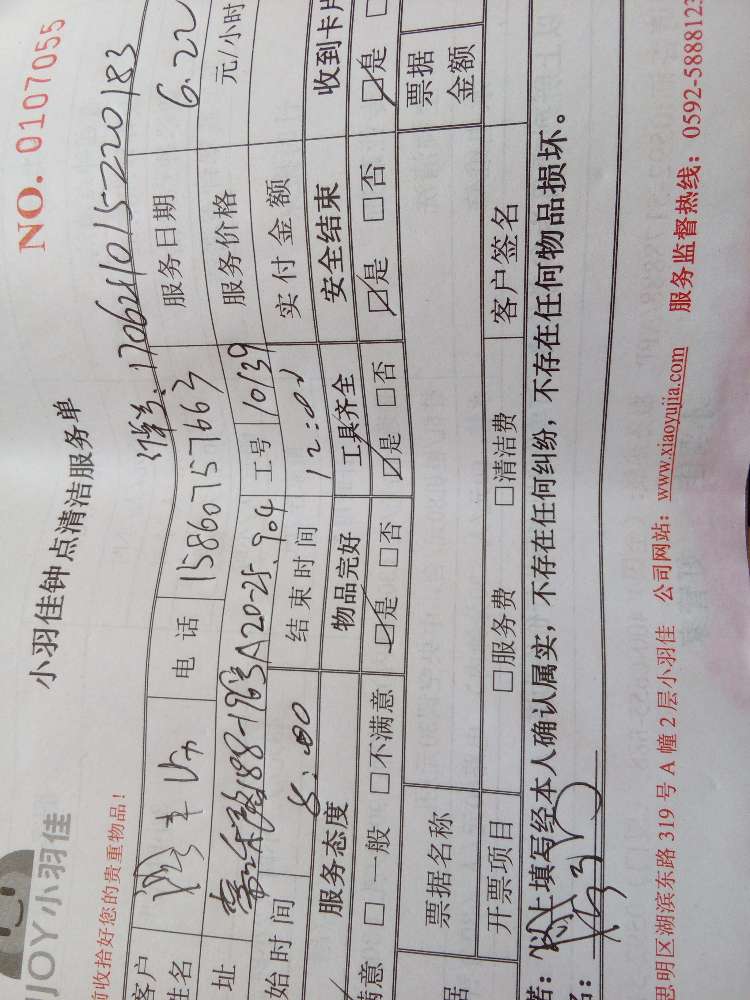 NO. 0107055
小羽佳钟点清洁服务单
JOY小羽佳
前收拾好您的贵重物品!
170621015220183
客户姓名 电话 15860757663 服务日期 6.22
址 188-196号A20-25.904 工号 10139 服务价格 元/小时
始时间 8:00 结束时间 12:00 实付金额
服务态度 物品完好 工具齐全 安全结束 收到卡片
满意 □一般 □不满意 ☑是 □否 ☑是 □否 ☑是 □否 ☑是
票据名称 票据金额
据 开票项目 □服务费 □清洁费 客户签名
诺:以上填写经本人确认属实,不存在任何纠纷,不存在任何物品损坏。
名:
思明区湖滨东路319号A幢2层小羽佳 公司网站:www.xiaoyujia.com 服务监督热线:0592-5888123